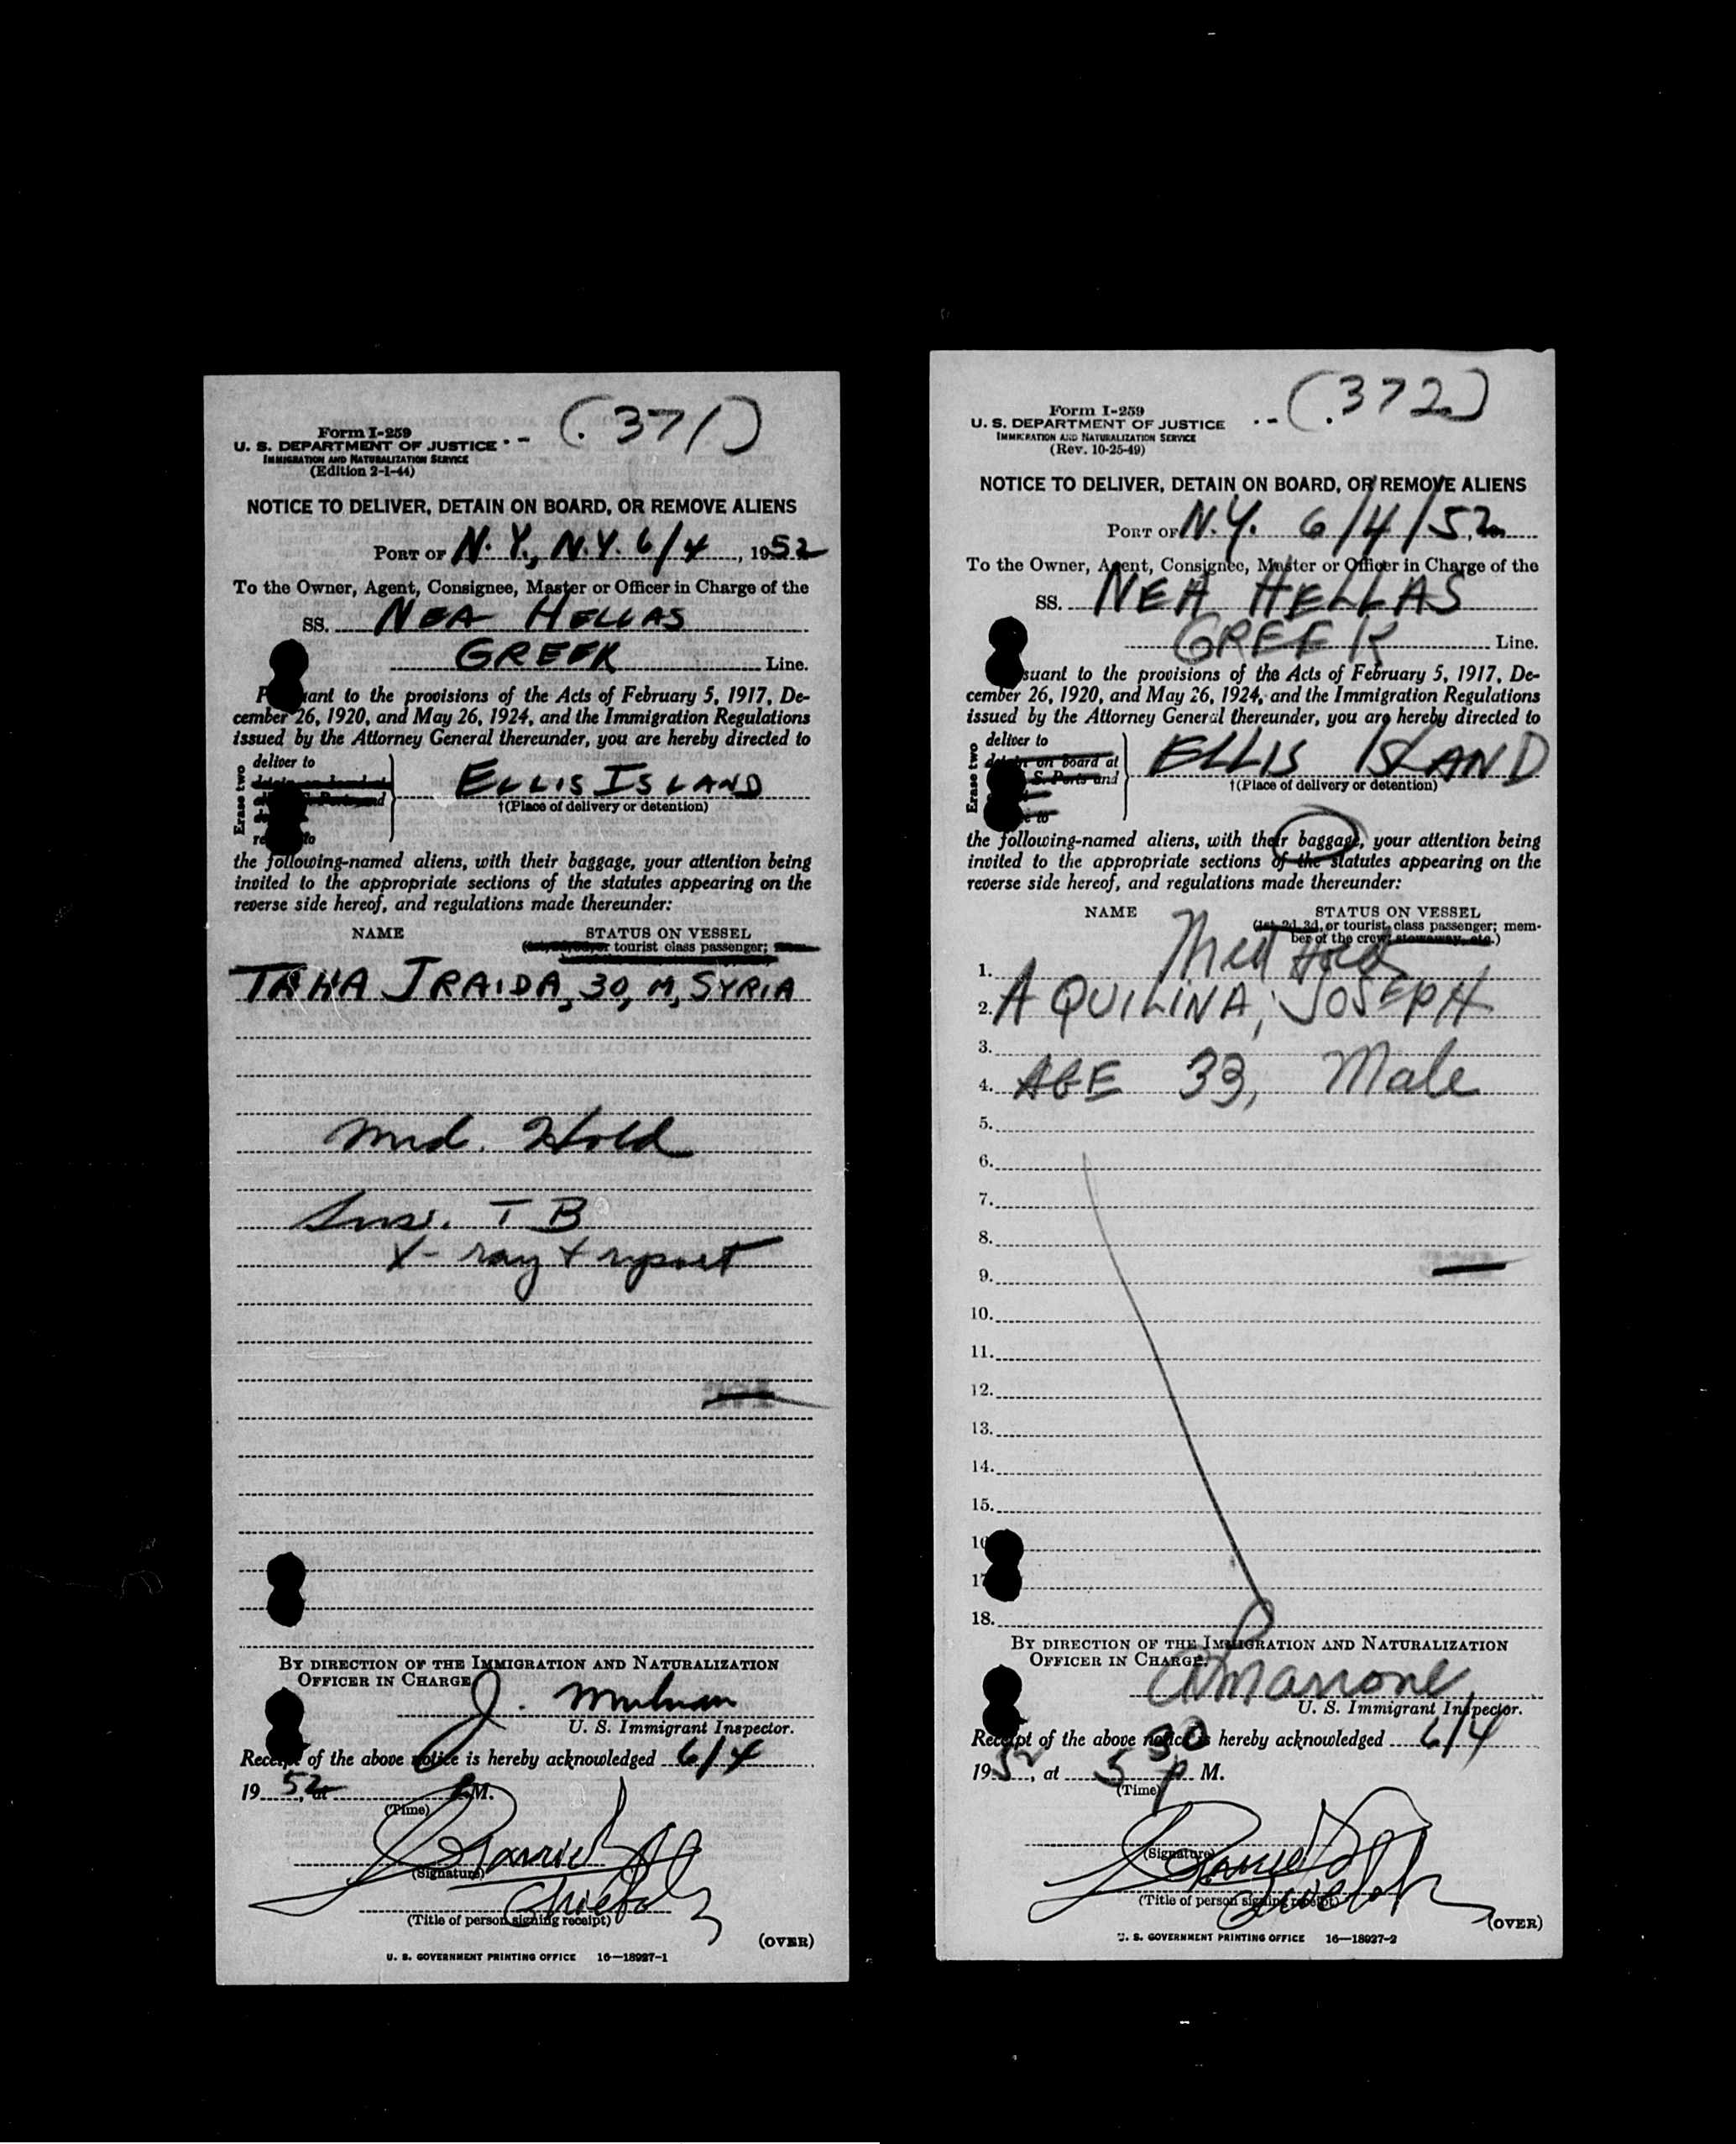 (371)
Form I-259
U. S. DEPARTMENT OF JUSTICE
IMMIGRATION AND NATURALIZATION SERVICE
(Edition 2-1-44)
NOTICE TO DELIVER, DETAIN ON BOARD, OR REMOVE ALIENS
PORT OF N.Y., N.Y. 6/4, 1952
To the Owner, Agent, Consignee, Master or Officer in Charge of the
SS. NEA HELLAS
GREEK Line.
P ant to the provisions of the Acts of February 5, 1917, De-
cember 26, 1920, and May 26, 1924, and the Immigration Regulations
issued by the Attorney General thereunder, you are hereby directed to
Erase two
deliver to
ELLIS ISLAND
†(Place of delivery or detention)
the following-named aliens, with their baggage, your attention being
invited to the appropriate sections of the statutes appearing on the
reverse side hereof, and regulations made thereunder:
NAME STATUS ON VESSEL
tourist class passenger;
TAHA JRAIDA, 30, M, SYRIA
Med. Hold
TB
X-ray + report
BY DIRECTION OF THE IMMIGRATION AND NATURALIZATION
OFFICER IN CHARGE
J.
U. S. Immigrant Inspector.
Receipt of the above notice is hereby acknowledged 6/4
1952, at P.M.
(Time)
(Signature)
(Title of person signing receipt)
(OVER)
U. S. GOVERNMENT PRINTING OFFICE 16—18927-1
(372)
Form I-259
U. S. DEPARTMENT OF JUSTICE
IMMIGRATION AND NATURALIZATION SERVICE
(Rev. 10-25-49)
NOTICE TO DELIVER, DETAIN ON BOARD, OR REMOVE ALIENS
PORT OF N.Y. 6/4/52
To the Owner, Agent, Consignee, Master or Officer in Charge of the
SS. NEA HELLAS
GREEK Line.
suant to the provisions of the Acts of February 5, 1917, De-
cember 26, 1920, and May 26, 1924, and the Immigration Regulations
issued by the Attorney General thereunder, you are hereby directed to
Erase two
deliver to
on board at
S. Ports and
ELLIS ISLAND
†(Place of delivery or detention)
the following-named aliens, with their baggage, your attention being
invited to the appropriate sections of the statutes appearing on the
reverse side hereof, and regulations made thereunder:
NAME STATUS ON VESSEL
(1st, 2d, 3d, or tourist class passenger; mem-
ber of the crew, stowaway, etc.)
1. Med Hold
2. AQUILINA, JOSEPH
3.
4. AGE 33, Male
5.
6.
7.
8.
9.
10.
11.
12.
13.
14.
15.
16
17
18.
BY DIRECTION OF THE IMMIGRATION AND NATURALIZATION
OFFICER IN CHARGE.
Marrone
U. S. Immigrant Inspector.
Receipt of the above notice is hereby acknowledged 6/4
1952, at 5 30 P. M.
(Time)
(Signature)
(Title of person signing receipt)
(OVER)
U. S. GOVERNMENT PRINTING OFFICE 16—18927-2